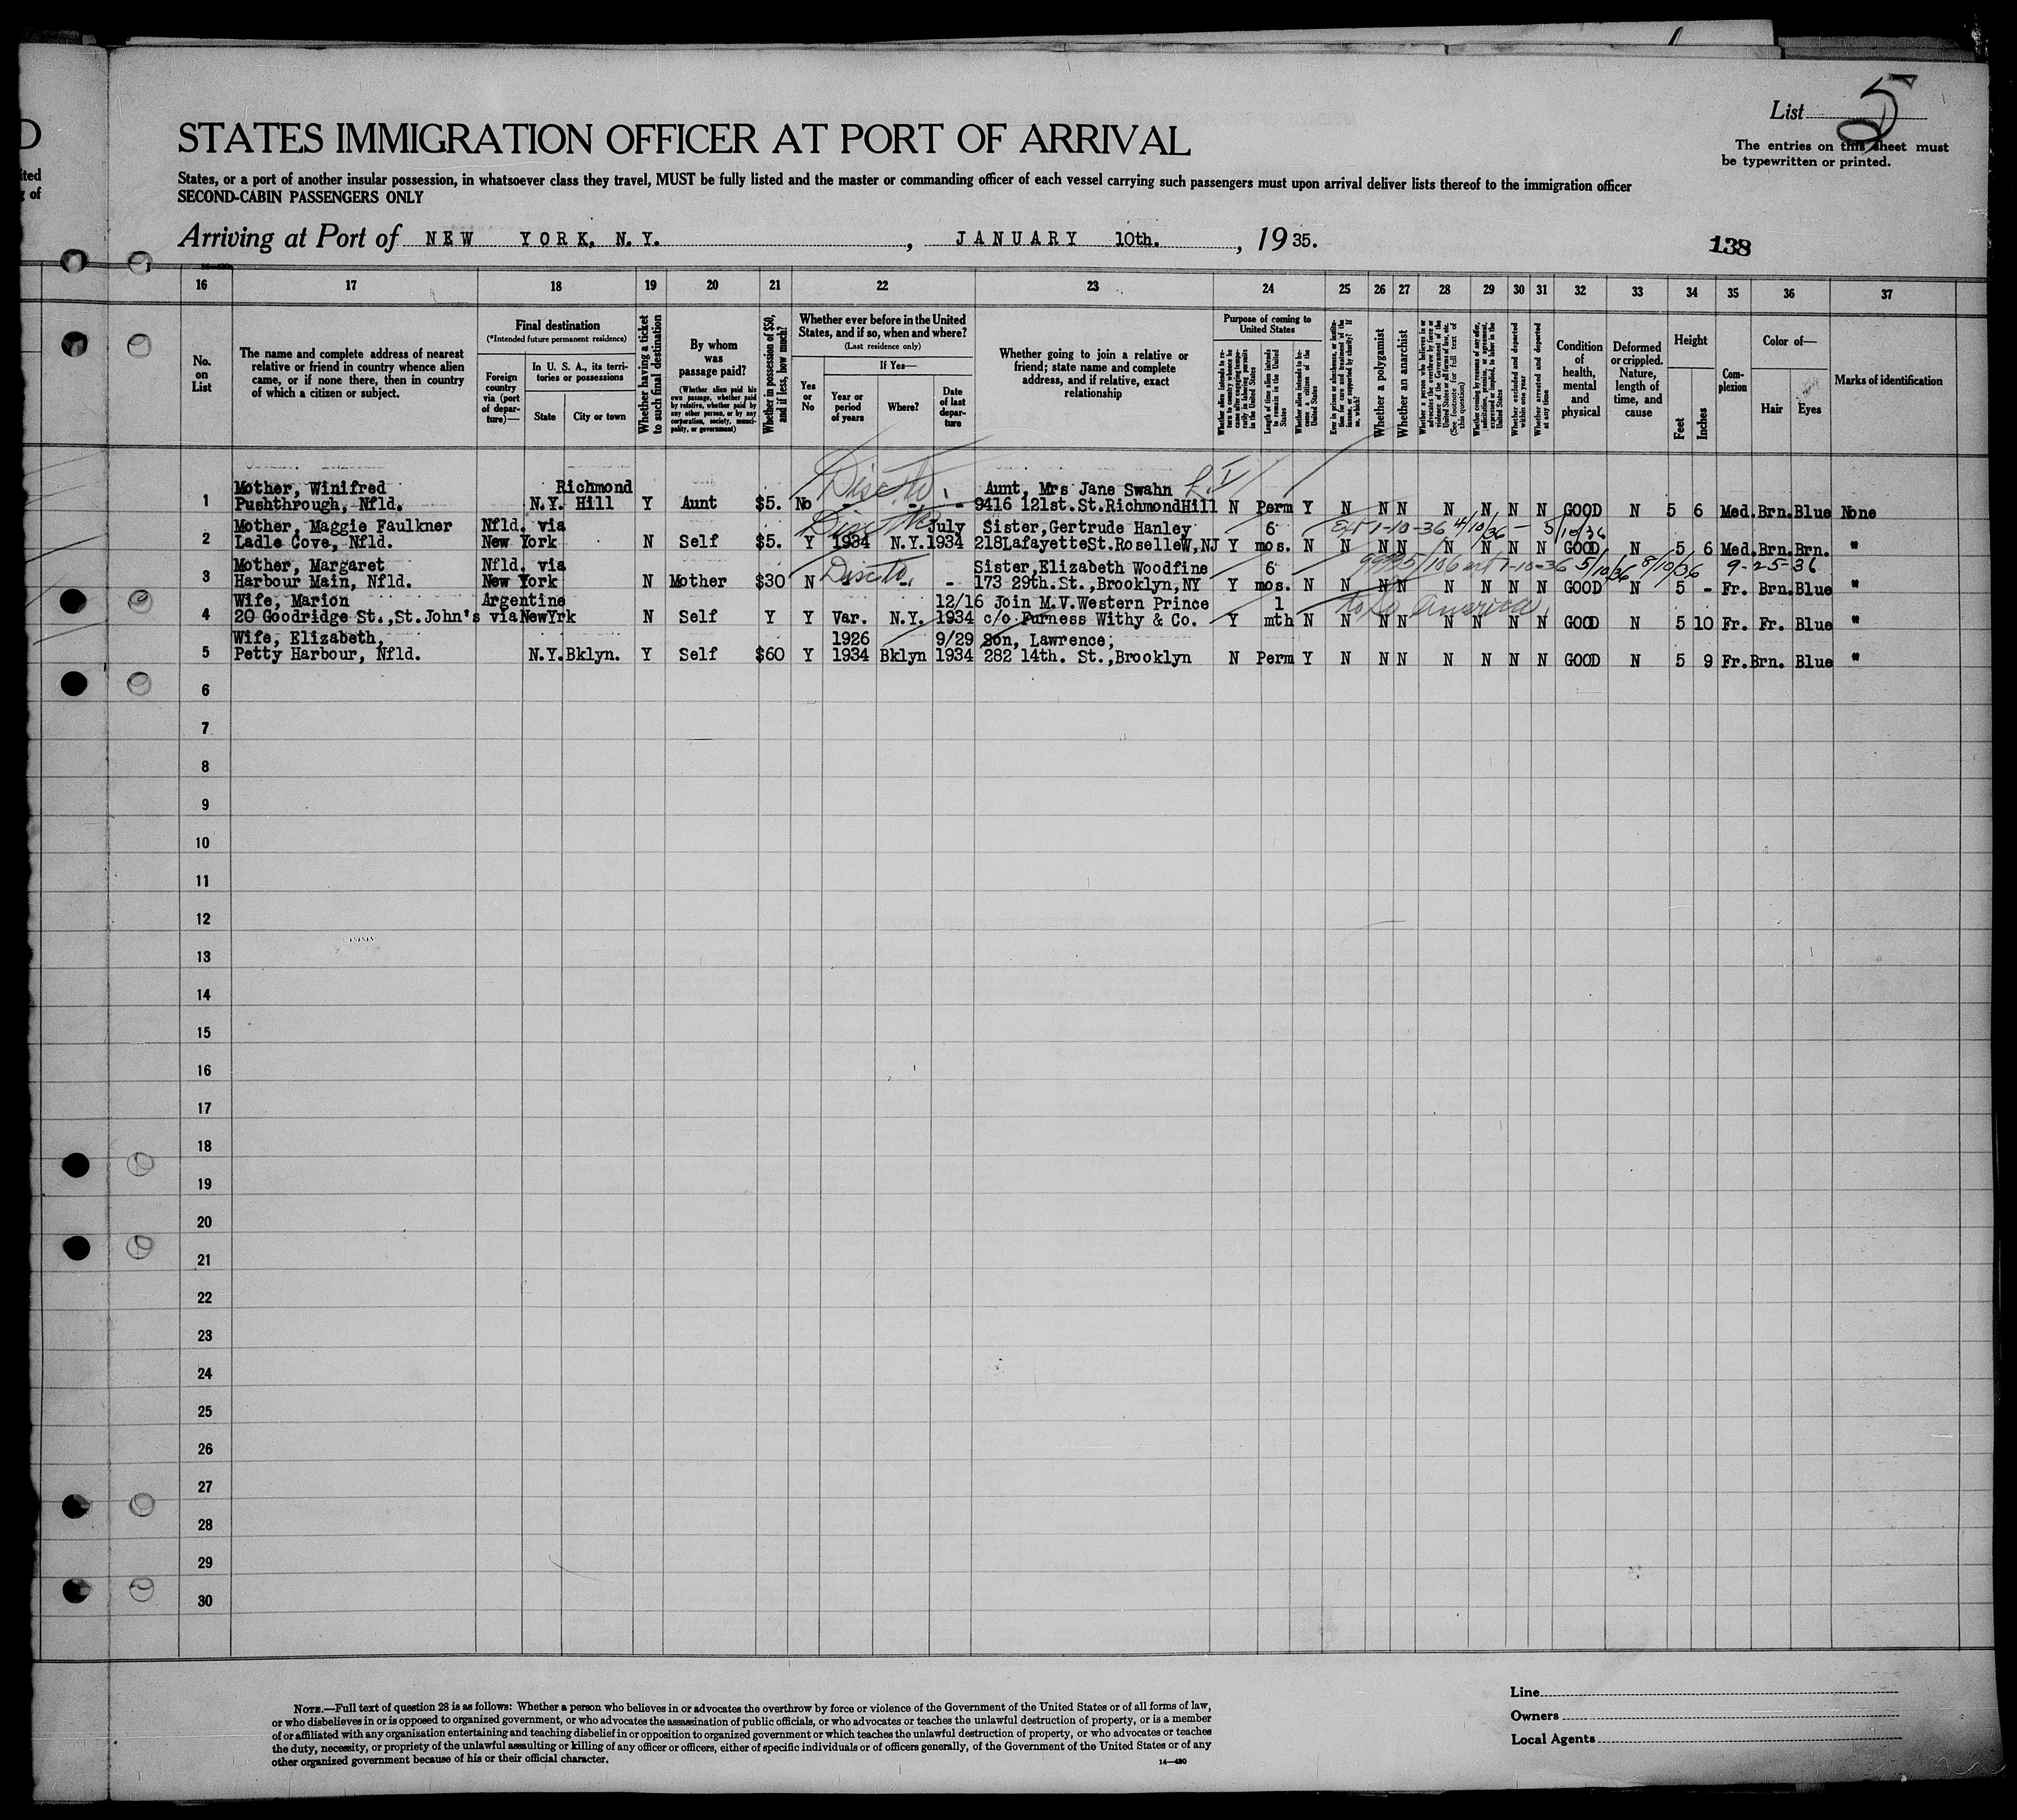 D
ited
g of
List 5
The entries on this sheet must
be typewritten or printed.
STATES IMMIGRATION OFFICER AT PORT OF ARRIVAL
States, or a port of another insular possession, in whatsoever class they travel, MUST be fully listed and the master or commanding officer of each vessel carrying such passengers must upon arrival deliver lists thereof to the immigration officer
SECOND-CABIN PASSENGERS ONLY
Arriving at Port of NEW YORK, N.Y., JANUARY 10th., 1935.
138
16 17 18 19 20 21 22 23 24 25 26 27 28 29 30 31 32 33 34 35 36 37
No. on List
The name and complete address of nearest relative or friend in country whence alien came, or if none there, then in country of which a citizen or subject.
Final destination
(*Intended future permanent residence)
Foreign country via (port of departure)—
In U. S. A., its territories or possessions
State
City or town
Whether having a ticket to such final destination
By whom was passage paid?
(Whether alien paid his own passage, whether paid by relative, whether paid by any other person, or by any corporation, society, municipality, or government)
Whether in possession of $50, and if less, how much?
Whether ever before in the United States, and if so, when and where?
(Last residence only)
Yes or No
If Yes—
Year or period of years
Where?
Date of last departure
Whether going to join a relative or friend; state name and complete address, and if relative, exact relationship
Purpose of coming to United States
Length of time alien intends to remain in the United States
Whether alien intends to become a citizen of the United States
Whether a polygamist
Whether an anarchist
Whether excluded and deported within one year
Whether arrested and deported at any time
Condition of health, mental and physical
Deformed or crippled. Nature, length of time, and cause
Height
Feet
Inches
Complexion
Color of—
Hair
Eyes
Marks of identification
Mother, Winifred Richmond Aunt, Mrs Jane Swahn
1 Pushthrough, Nfld. N.Y. Hill Y Aunt $5. No - - - 9416 121st.St.RichmondHill N Perm Y N N N N N N N GOOD N 5 6 Med.Brn.Blue None
Mother, Maggie Faulkner Nfld. via July Sister,Gertrude Hanley 6 1-10-36 4/10/36 - 5/10/36
2 Ladle Cove, Nfld. New York N Self $5. Y 1934 N.Y.1934 218LafayetteSt.RoselleW,NJ Y mos. N N N N N N N N GOOD N 5 6 Med.Brn.Brn. "
Mother, Margaret Nfld. via Sister,Elizabeth Woodfine 6 1-10-36 5/10/36 8/10/36 9-25-36
3 Harbour Main, Nfld. New York N Mother $30 N - - - 173 29th.St.,Brooklyn,NY Y mos. N N N N N N N N GOOD N 5 - Fr. Brn.Blue "
Wife, Marion Argentine 12/16 Join M.V.Western Prince 1 to So America
4 20 Goodridge St.,St.John's viaNewYrk N Self Y Y Var. N.Y. 1934 c/o Furness Withy & Co. Y mth N N N N N N N N GOOD N 5 10 Fr. Fr. Blue "
Wife, Elizabeth, 1926 9/29 Son, Lawrence;
5 Petty Harbour, Nfld. N.Y.Bklyn. Y Self $60 Y 1934 Bklyn 1934 282 14th. St.,Brooklyn N Perm Y N N N N N N N GOOD N 5 9 Fr.Brn. Blue "
6
7
8
9
10
11
12
13
14
15
16
17
18
19
20
21
22
23
24
25
26
27
28
29
30
NOTE.—Full text of question 28 is as follows: Whether a person who believes in or advocates the overthrow by force or violence of the Government of the United States or of all forms of law,
or who disbelieves in or is opposed to organized government, or who advocates the assassination of public officials, or who advocates or teaches the unlawful destruction of property, or is a member
of or affiliated with any organization entertaining and teaching disbelief in or opposition to organized government or which teaches the unlawful destruction of property, or who advocates or teaches
the duty, necessity, or propriety of the unlawful assaulting or killing of any officer or officers, either of specific individuals or of officers generally, of the Government of the United States or of any
other organized government because of his or their official character.
14—430
Line
Owners
Local Agents